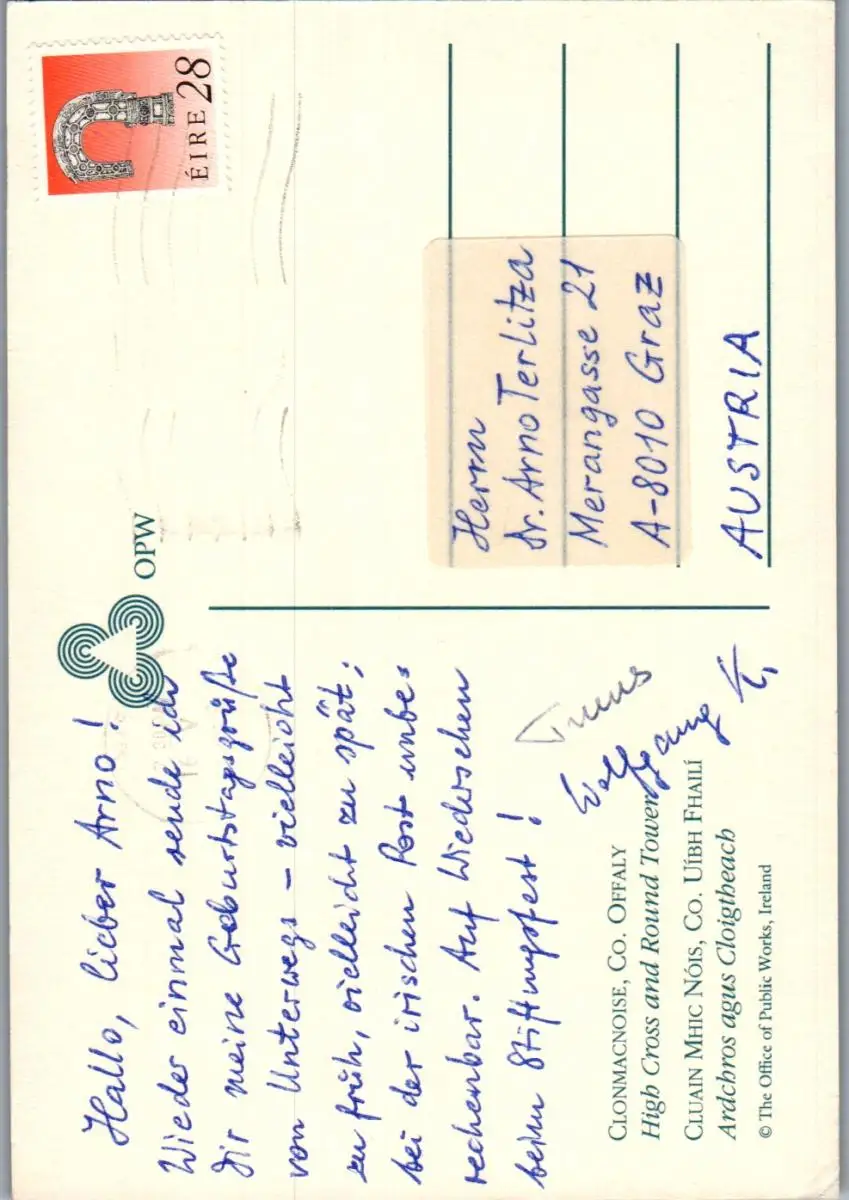 Hallo, lieber Arno!
Wieder einmal sende ich
Dir meine Geburtstagsgrüße
von Unterwegs – vielleicht
zu früh, vielleicht zu spät;
bei der irischen Post unbe-
rechenbar. Auf Wiedersehen
beim Stiftungsfest!
Wolfgang
CLONMACNOISE, CO. OFFALY
High Cross and Round Tower
CLUAIN MHIC NÓIS, CO. UÍBH FHAILÍ
Ardchros agus Cloigtheach
© The Office of Public Works, Ireland
OPW
ÉIRE 28
Herrn
Dr. Arno Terlitza
Merangasse 21
A-8010 Graz
AUSTRIA